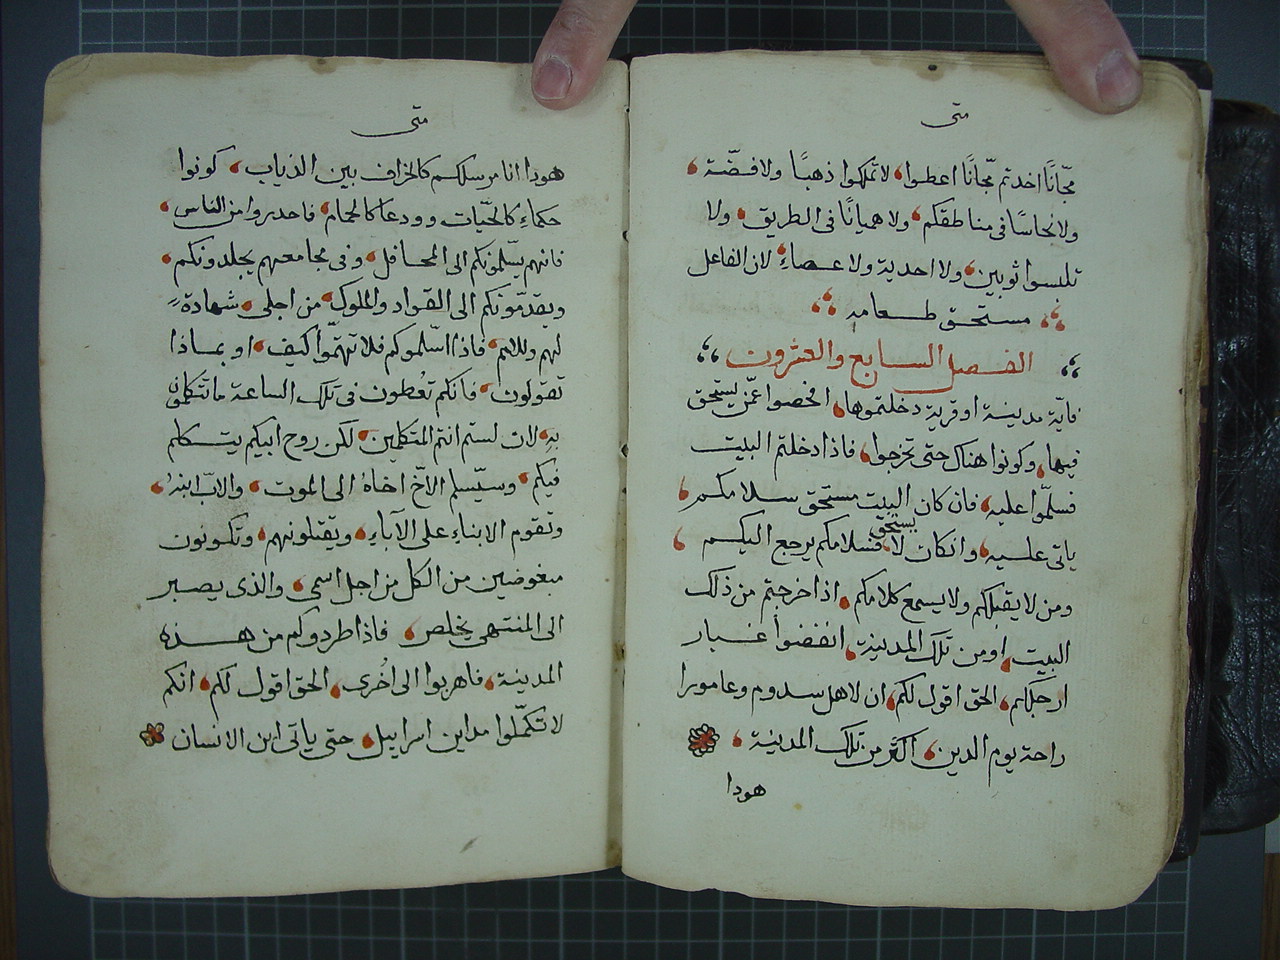 متى
مجّانًا اخدتم مجّانًا اعطوا، لا تملكوا ذهبًا ولا فضّة،
ولا نحاسًا فى مناطقكم، ولا هميانًا فى الطريق، ولا
تلبسوا ثوبين، ولا احدية ولا عصاءِ، لان الفاعل
مستحق طعامه
الفصل السابع والعشرون
فايّة مدينة او قرية دخلتموها، افحصوا عمّن يستحق
فيها، وكونوا هناك حتى تخرجوا، فاذا دخلتم البيت
فسلّموا عليه، فان كان البيت مستحق سلامكم،
ياتى عليه، وانكان لا يستحق فسلامكم يرجع اليكم،
ومن لا يقبلكم ولا يسمع كلامكم، اذا خرجتم من ذلك
البيت، او من تلك المدينة، انفضوا غبار
ارجلكم، الحق اقول لكم، ان لاهل سدوم وعامورا
راحة يوم الدين، اكثر من تلك المدينة،
هودا
متى
هودا انا مرسلكم كالخراف بين الذياب، كونوا
حكماءِ كالحيّات وودعا كالحمام، فاحدروا من الناس،
فانهم يسّلمونكم الى المحافل، وفى مجامعهم يجلدونكم،
ويقدمّونكم الى القواد والملوك، من اجلى، شهادةً
لهم وللامم، فاذا اسّلموكم فلا تهتمّوا كيف، او بماذا
تقولون، فانكم تُعطون فى تلك الساعة ما تتكلمون
بهِ، لان لستم انتم المتكلمين، لكن روح ابيكم يتكلم
فيكم، وسيّسلم الاخّ اخاهُ الى الموت، والابّ ابنهُ،
وتقوم الابناءِ على الآباءِ، ويقتلونهم، وتكونون
مبغوضين من الكل من اجل اسمى، والذى يصبر
الى المنتهى يخلص، فاذا طردوكم من هذه
المدينة، فاهربوا الى اُخرى، الحق اقول لكم، انكم
لا تكمّلوا مداين اسراييل، حتى ياتى ابن الانسان